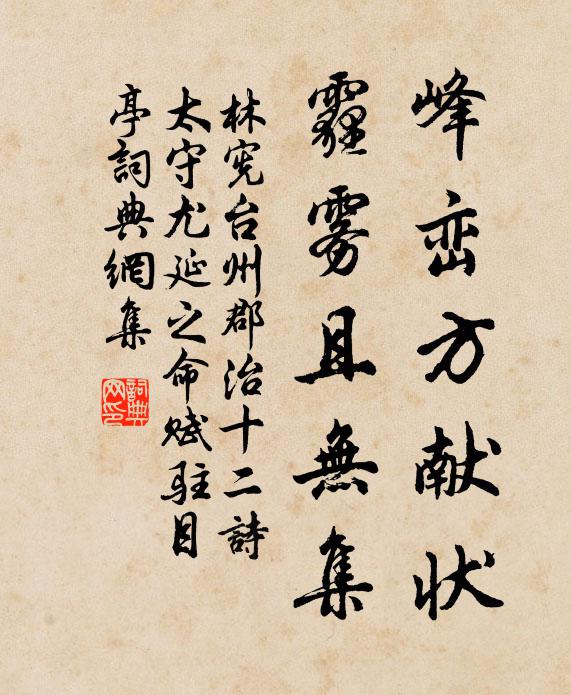 峰峦方献状
霾雾且無集
林宪台州郡治十二詩
太守尤延之命赋驻目
亭詞典網集
詞典网印